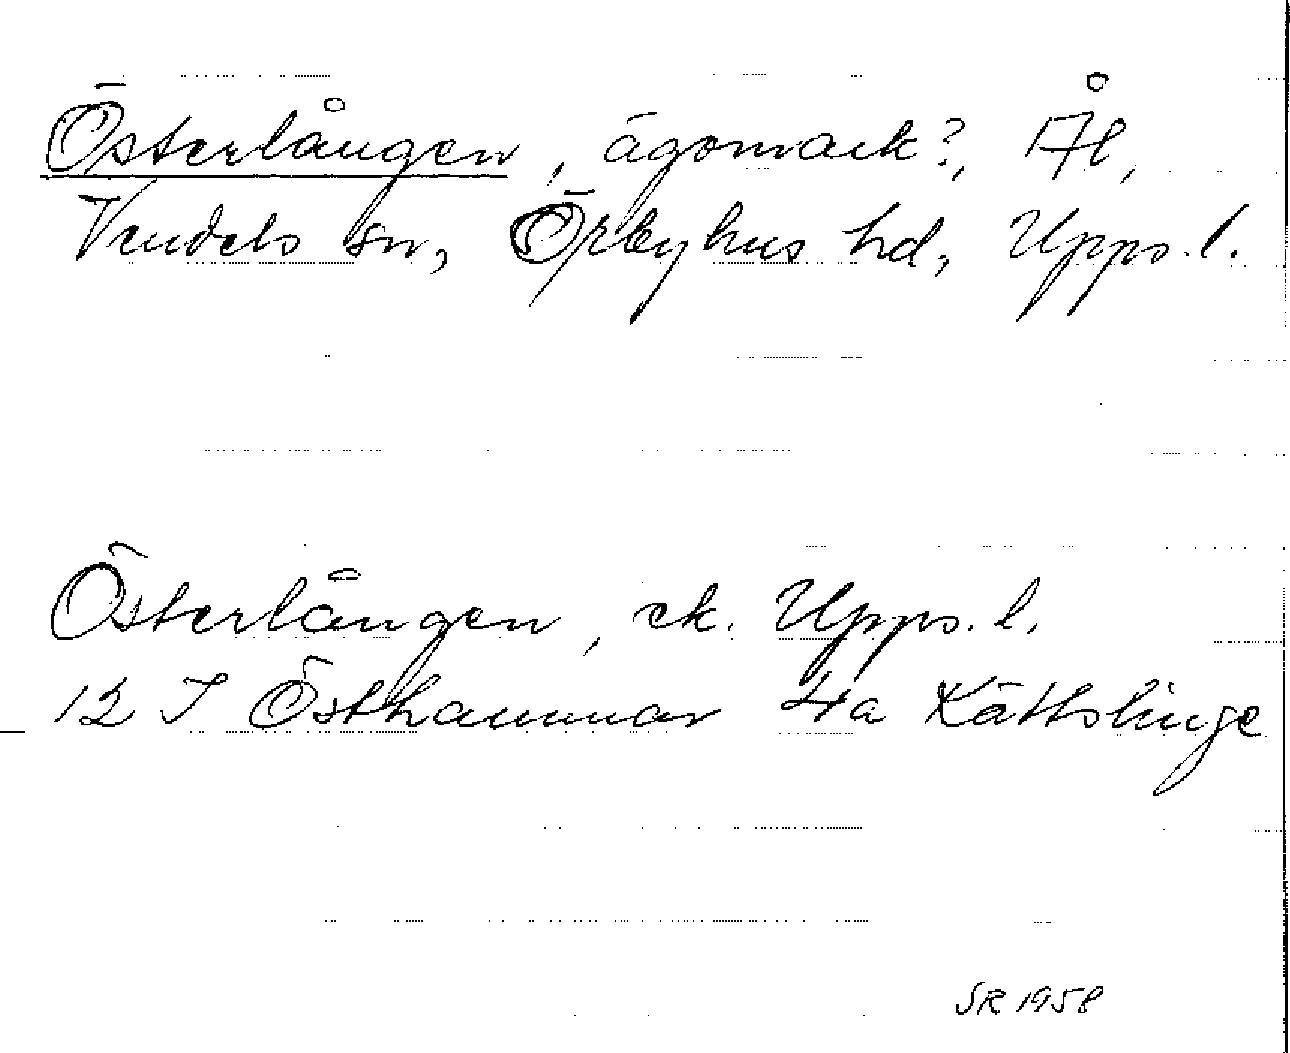 Österlången, ägomark?, Ål,
Vendels sn, Örbyhus hd, Upps. l.
Österlången, ek. Upps. l.
12 I Östhammar 4a Kättslinge
SR 1958